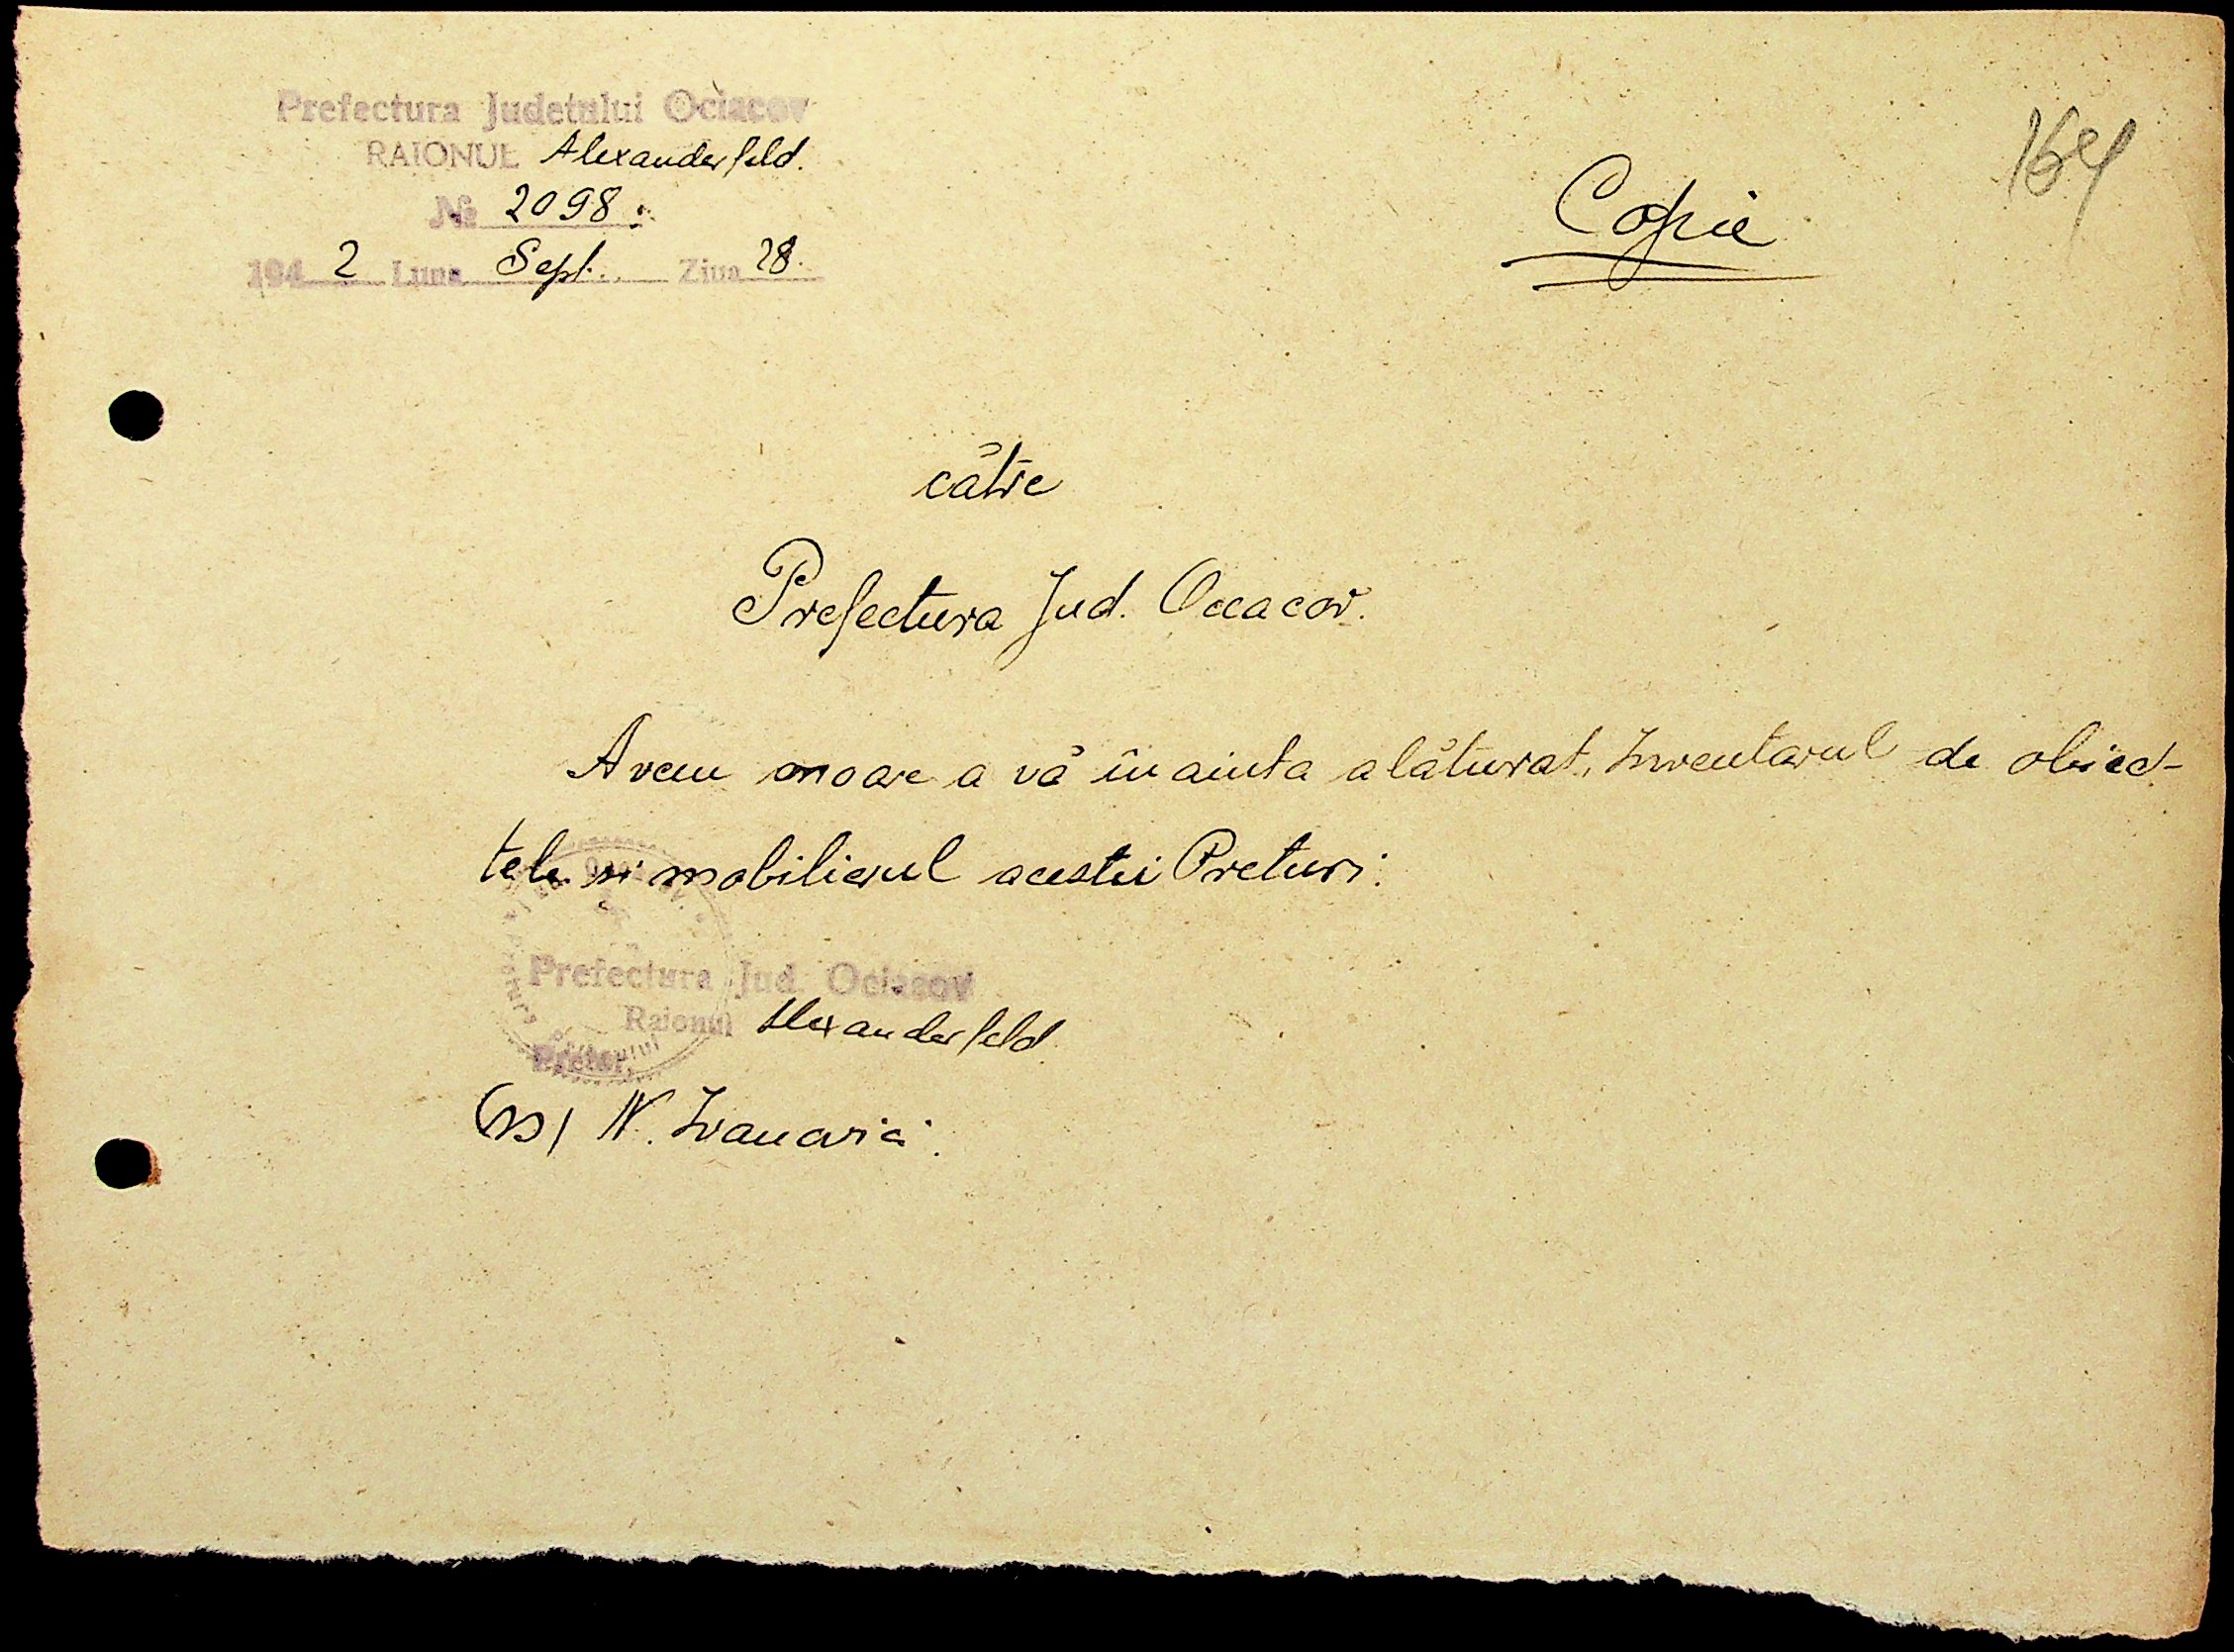 Prefectura Judetului Ociacov
RAIONUL Alexanderfeld.
№ 2098.
1942 Luna Sept. Ziua 28.
164
Copie
către
Prefectura Jud. Oceacov.
Avem onoare a vă înainta alăturat, Inventarul de obiec-
tele și mobilierul acestei Preturi.
Prefectura Jud. Ociacov
Raionul Alexanderfeld
Pretor,
(ss) N. Ivanovici.